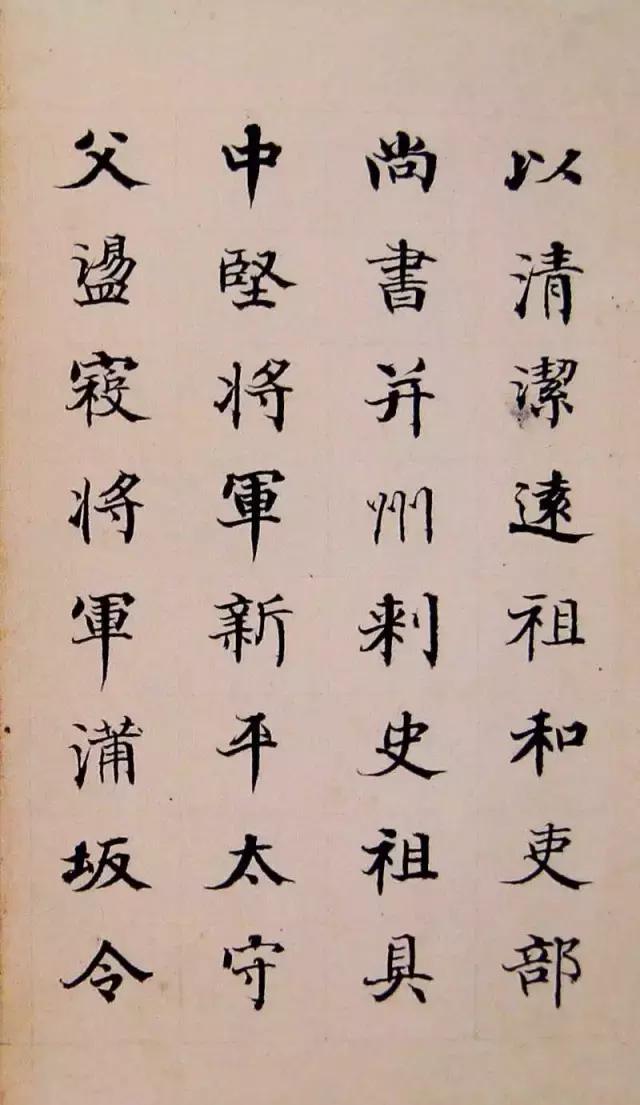 以清潔遠祖和吏部
尚書并州刺史祖具
中堅将軍新平太守
父盪寇将軍蒲坂令